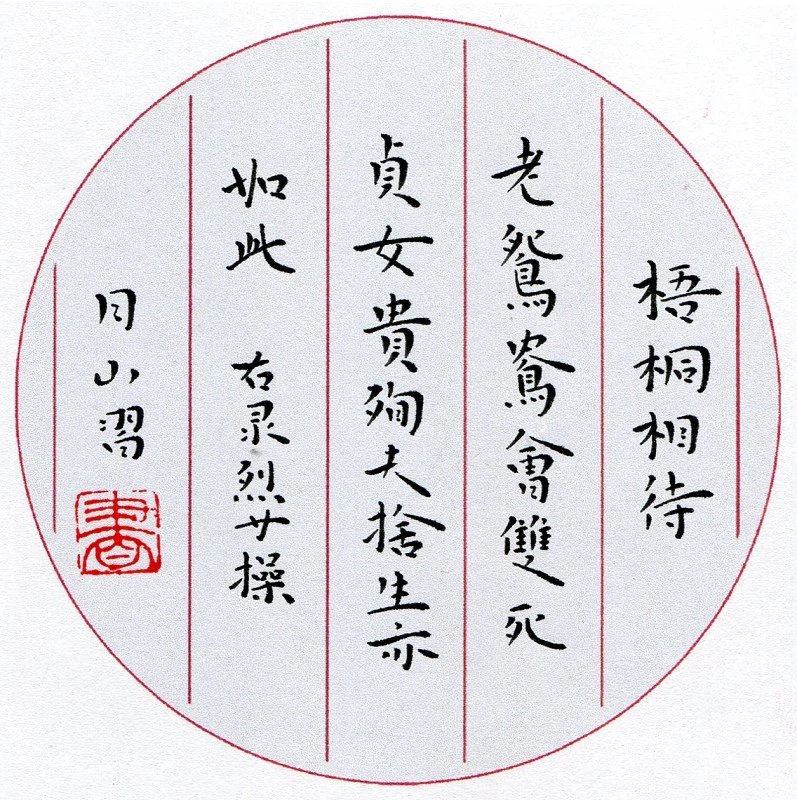 梧桐相待
老鴛鴦會雙死
貞女貴殉夫捨生亦
如此 右录烈女操
月山
書